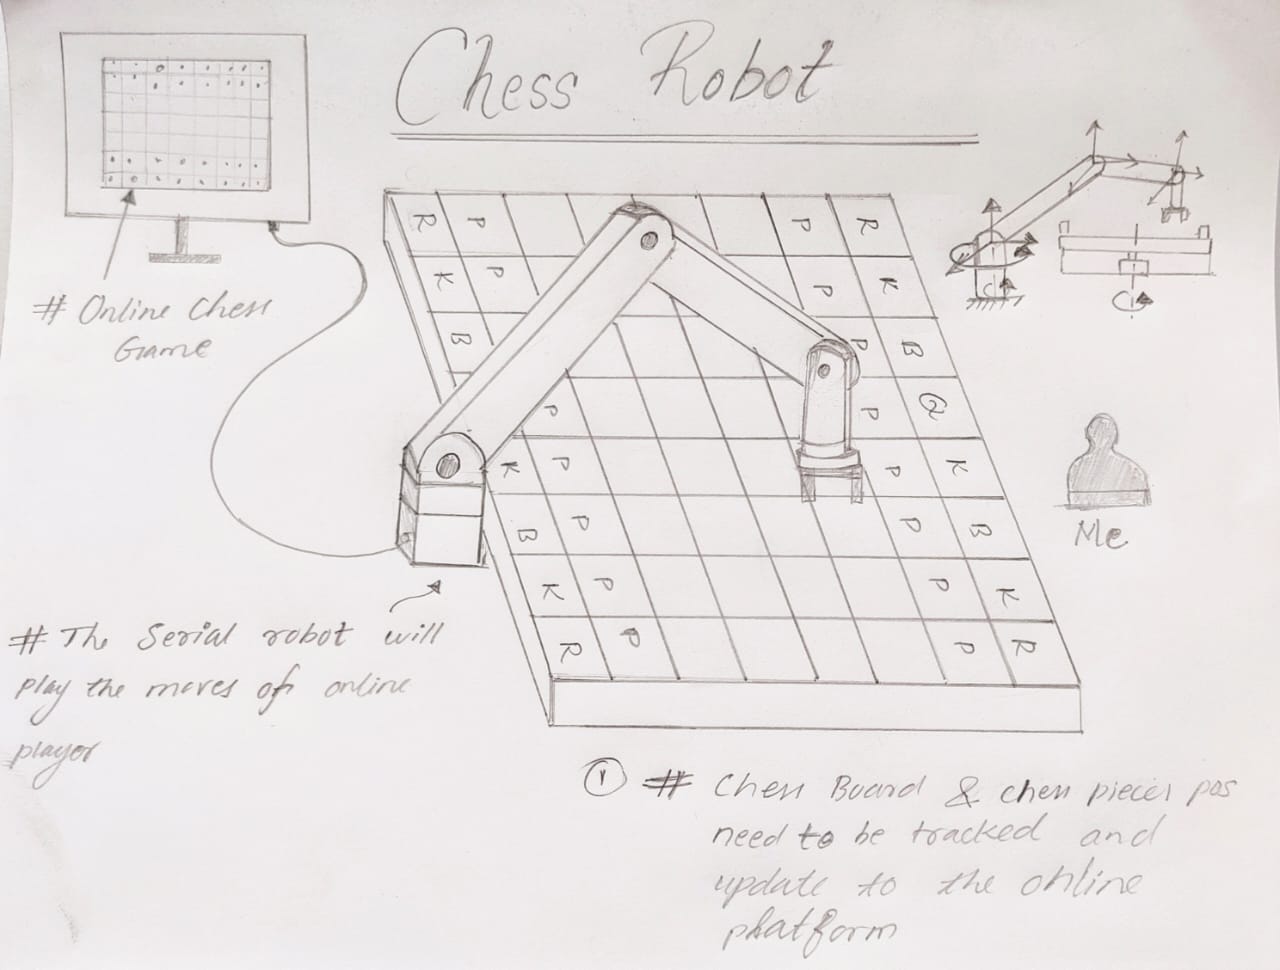 Chess Robot
# Online Chess
Game
R P P R
K P P K
B P B
P P Q
K P P K
B P P B
K P P K
R P P R
Me
# The Serial robot will
play the moves of online
player
1 # Chess Board & chess pieces pos
need to be tracked and
update to the online
platform